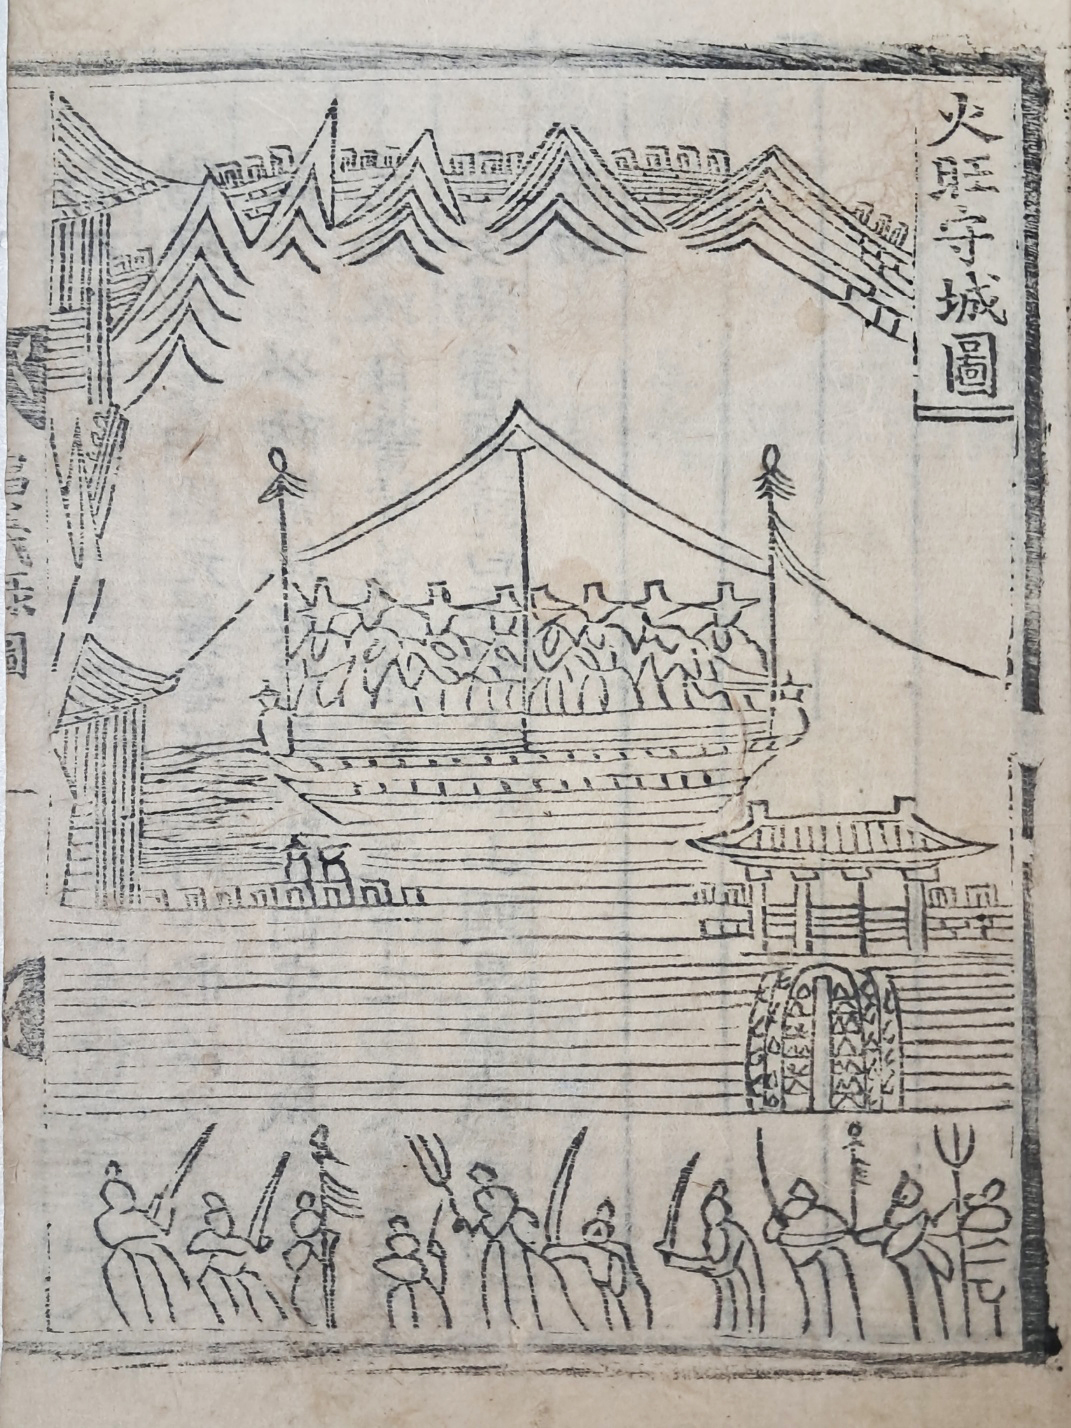 火旺守城圖